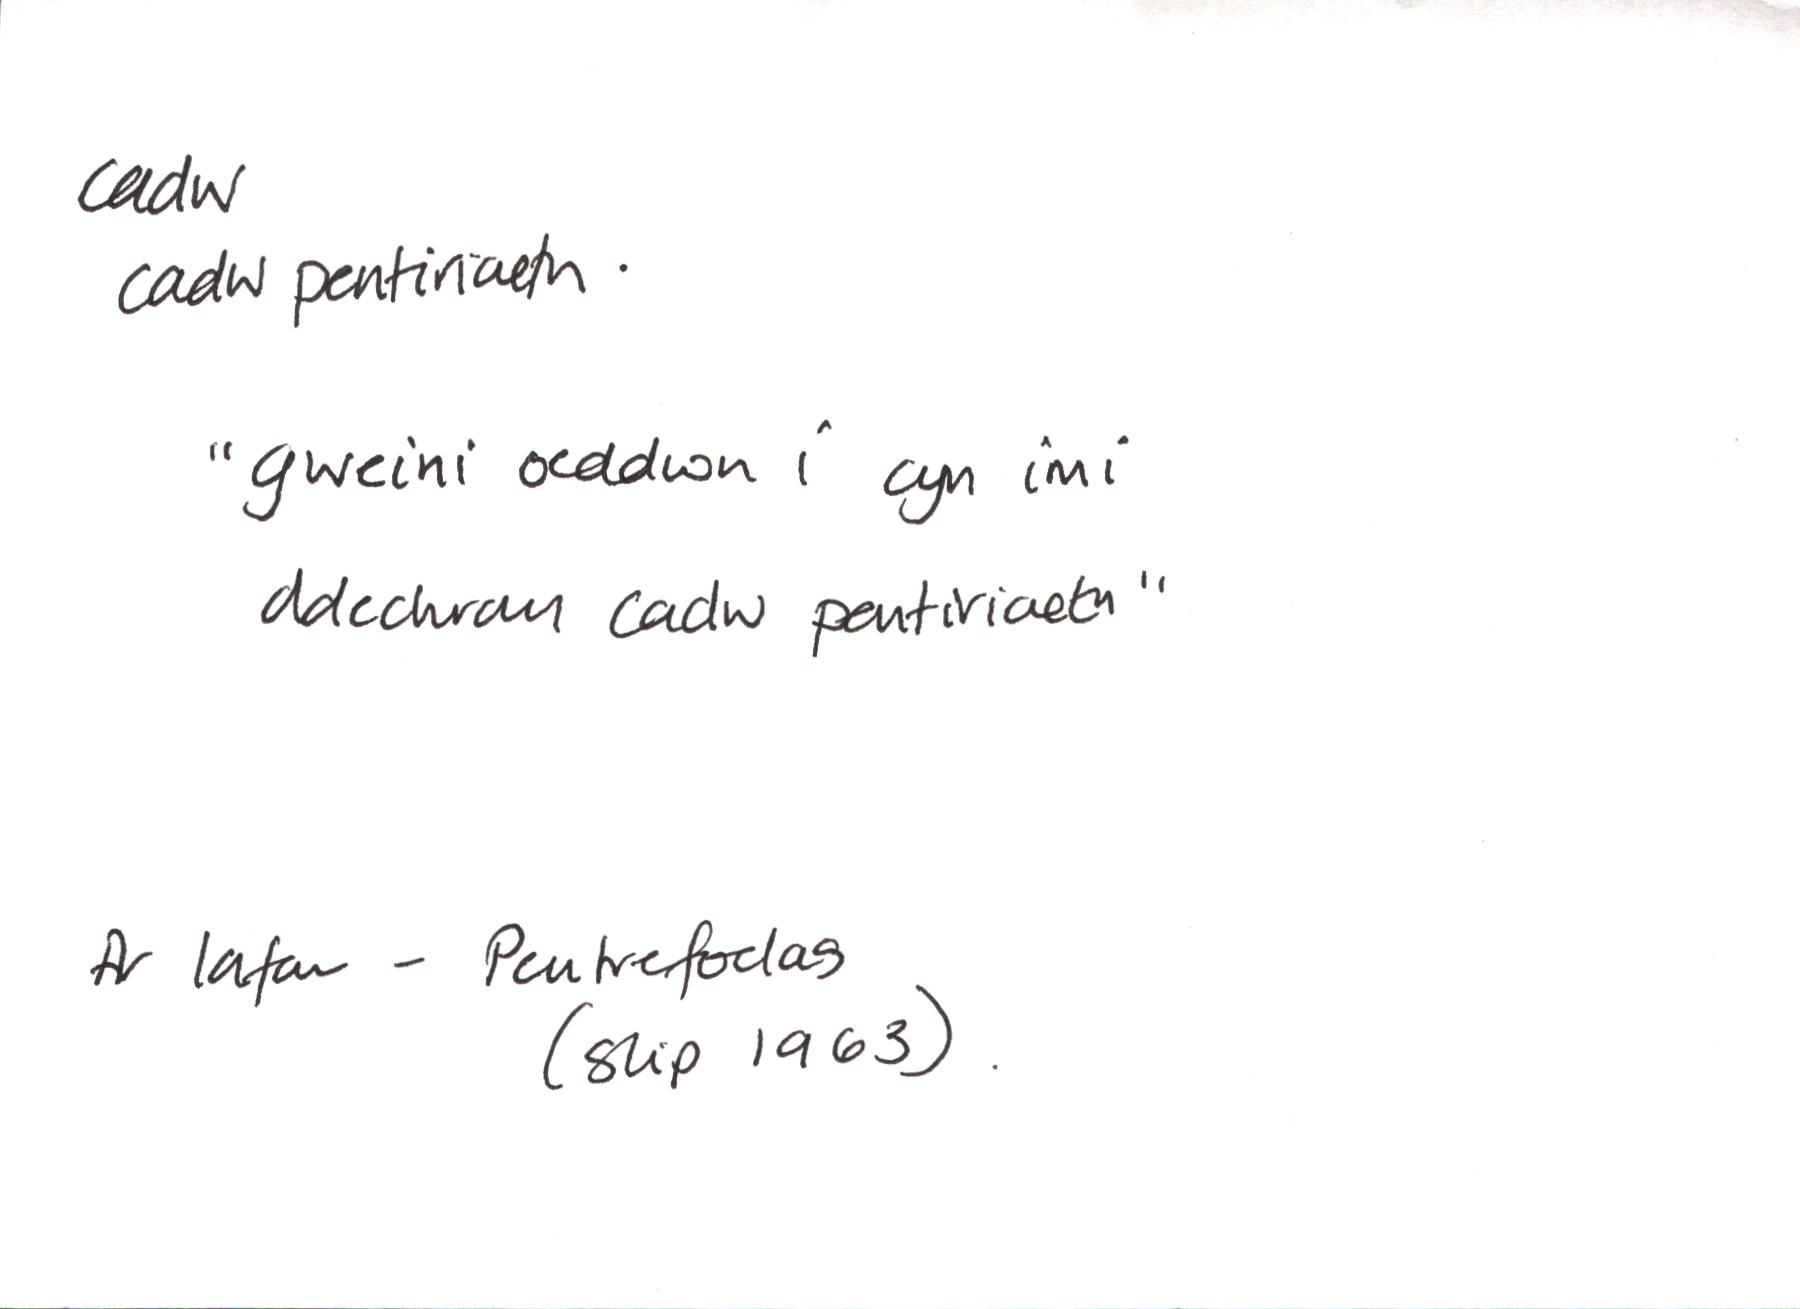 cadw
cadw pentiriaeth.
"gweini oeddwn î cyn îmi
ddechrau cadw pentiriaeth"
Ar lafar - Pentrefoelas
(slip 1963).